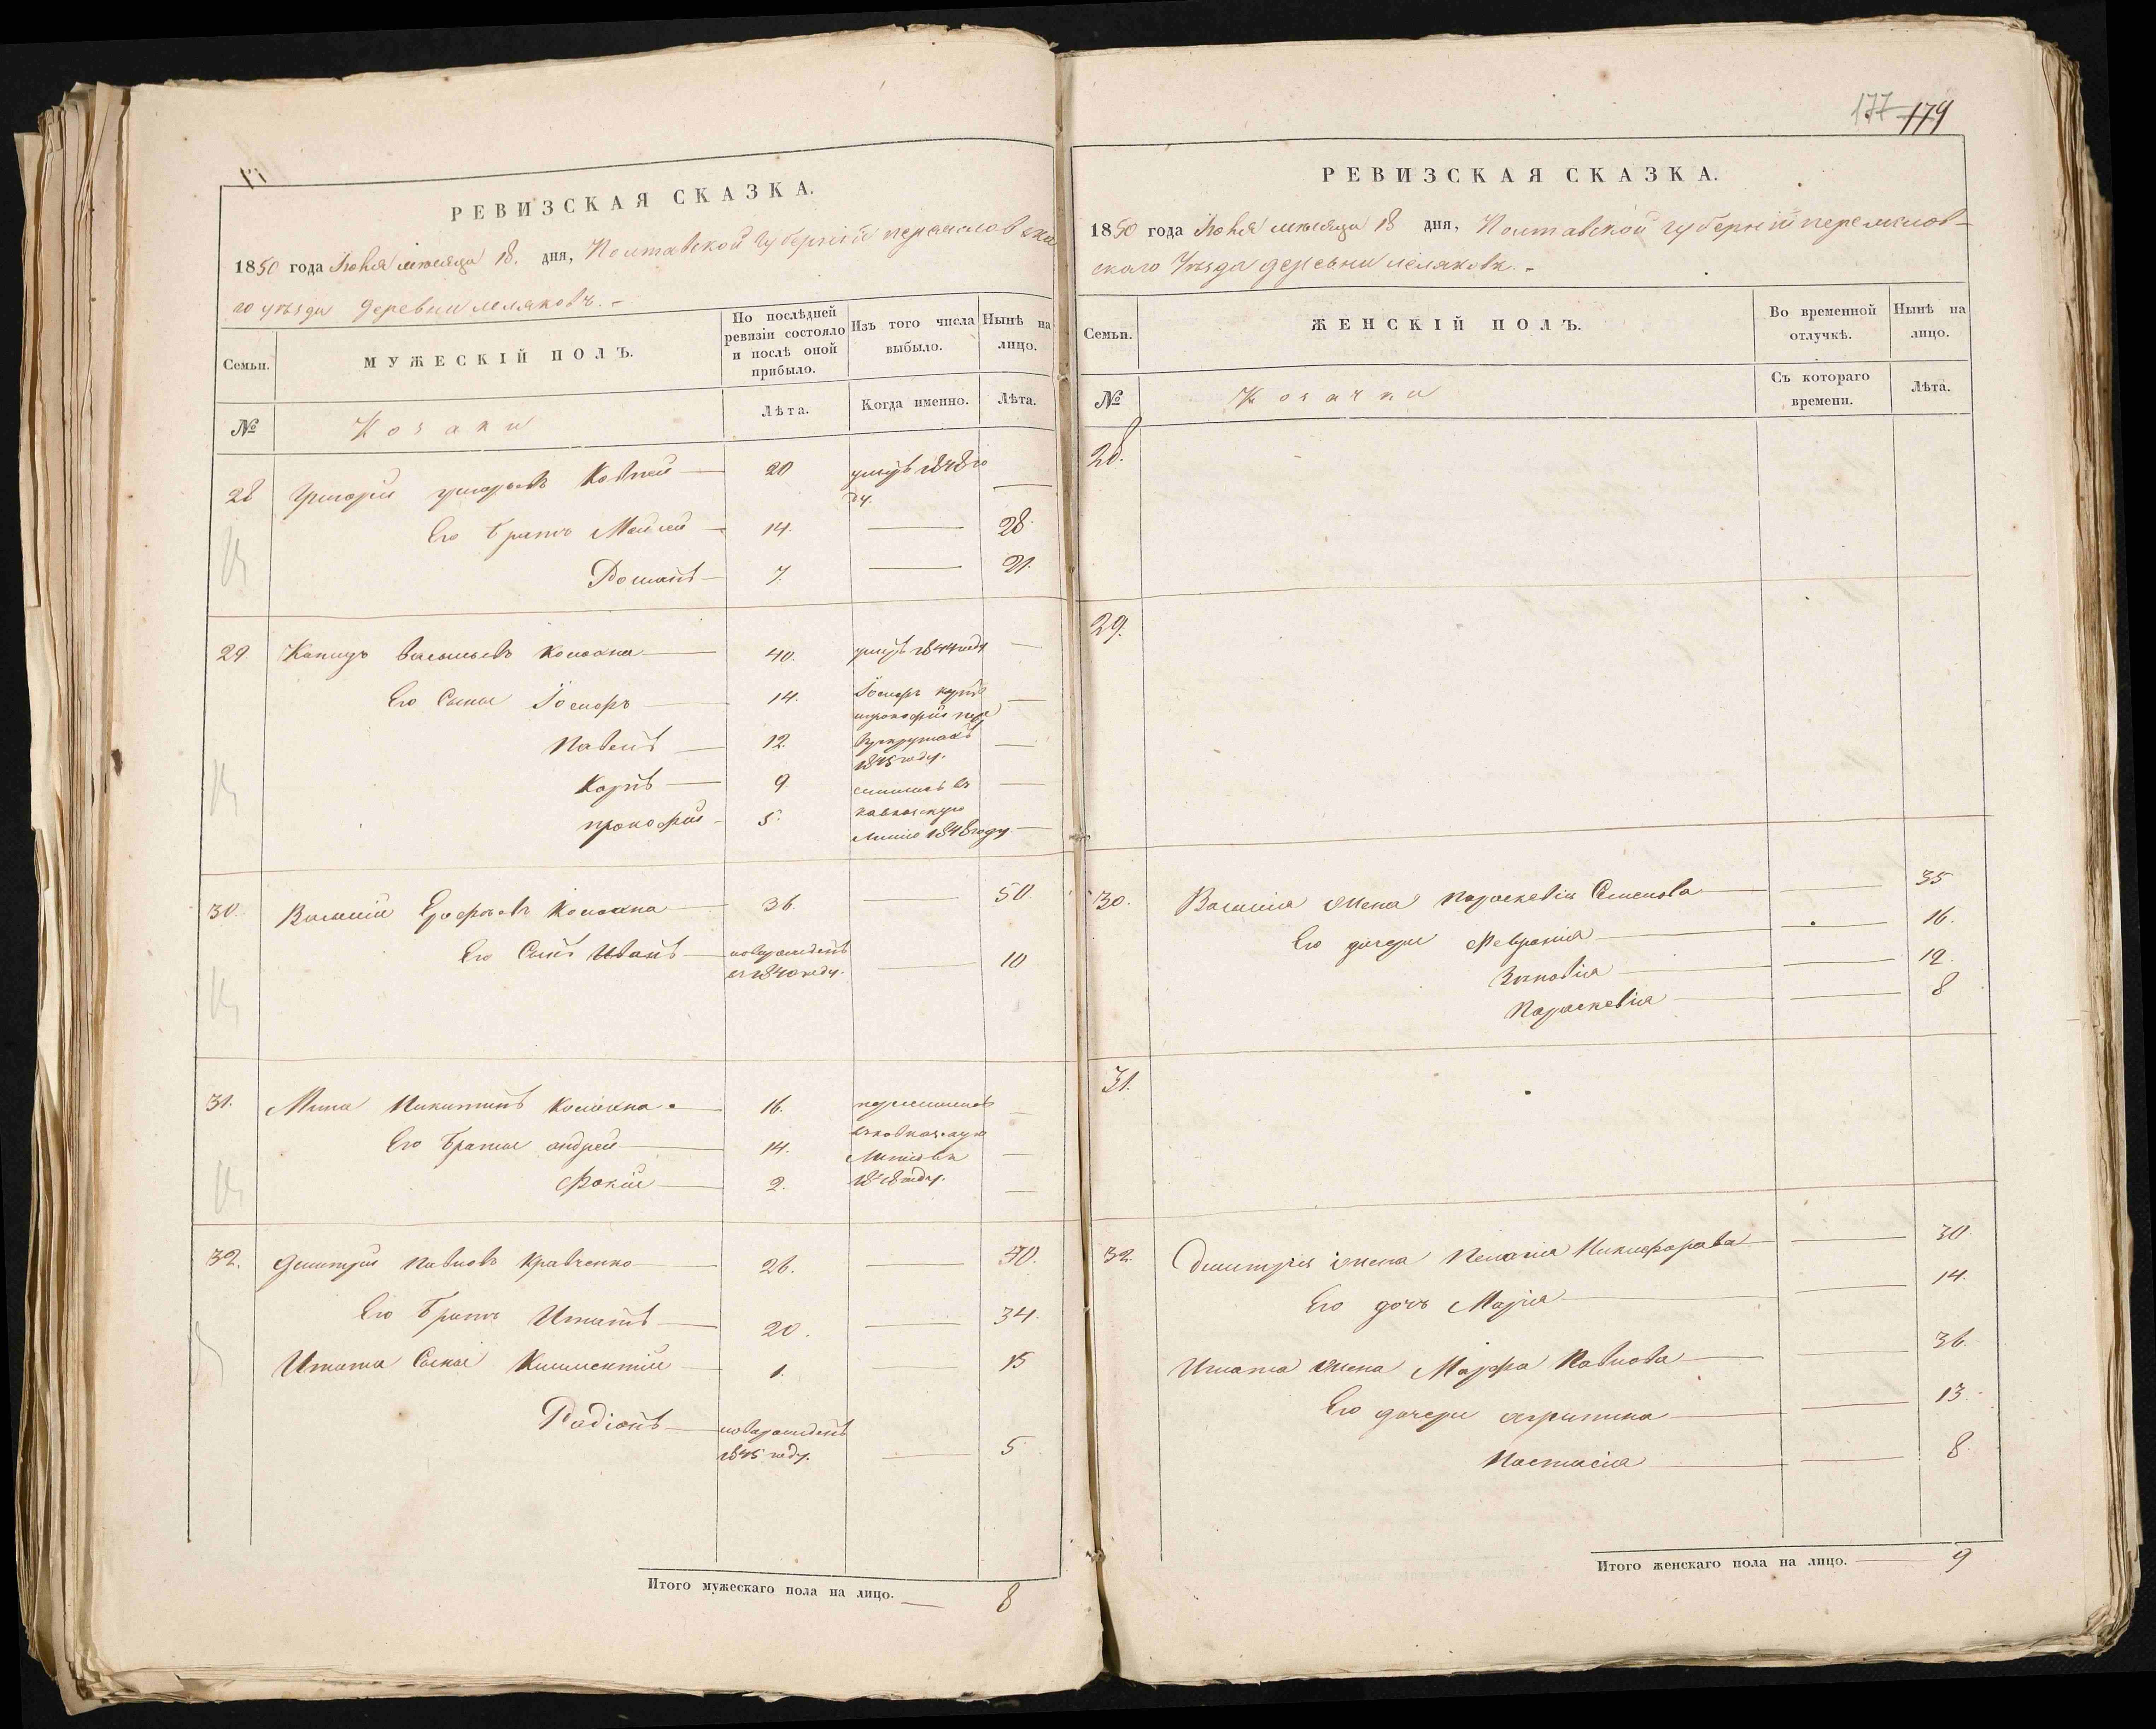 РЕВИЗСКАЯ СКАЗКА.
1850 года Іюня мѣсяца 18. дня, Полтавской Губерніи переяслов ска
го уѣзда деревни
Семьи.
МУЖЕСКІЙ ПОЛЪ.
По послѣдней ревизіи состояло и послѣ оной прибыло.
Изъ того числа выбыло.
Нынѣ на лицо.
№
Козаки
Лѣта.
Когда именно.
Лѣта.
28 Григорій Григорьевъ 20 умеръ 1848 го
ду.
Его братъ 14. 28.
Романъ 7. 21.
29. Васильевъ 40. умеръ 1844 году
Его Сыны Іосифъ 14. Іосифъ
Павелъ 12.
1845 году.
Карпъ 9
кавказскую
прокофій 5. линію 1848 году
30. Василій 36. 50
Его Сынъ Иванъ новорожденъ
въ 1840 году. 10
31. Никитинъ 16.
Его братья андрей 14.
Фокій 2. 1848 году.
32. Дмитрій Павловъ Кравченко 26. 40.
Его братъ Игнатъ 20. 34.
Игната Сыны 1. 15
Радіонъ новорожденъ
1845 году. 5
Итого мужескаго пола на лицо. 8
177 179
РЕВИЗСКАЯ СКАЗКА.
1850 года Іюня мѣсяца 18 дня, Полтавской губерніи переяслов-
скаго Уѣзда деревни
Семьи.
ЖЕНСКІЙ ПОЛЪ.
Во временной отлучкѣ.
Нынѣ на лицо.
№
Козачки
Съ котораго времени.
Лѣта.
28.
29.
30. Василія жена Параскевія Семенова 35
Его дочери Февронія 16.
Зиновія 12.
Параскевія 8
31.
32. Дмитрія жена Пелагія Никифорова 30
Его дочь Марія 14.
Игната жена Марфа Павлова 36.
Его дочери агрипина 13.
Настасія 8.
Итого женскаго пола на лицо. 9